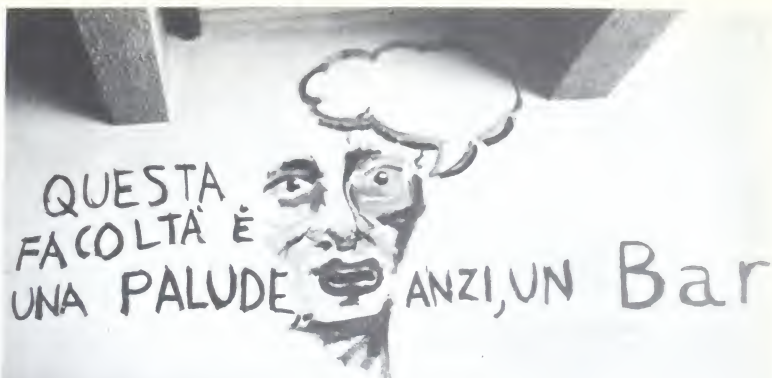 QUESTA
FACOLTÀ È
UNA PALUDE, ANZI, UN Bar